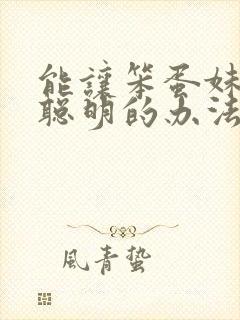 能讓笨蛋妹
聰明的办法
風青蟄